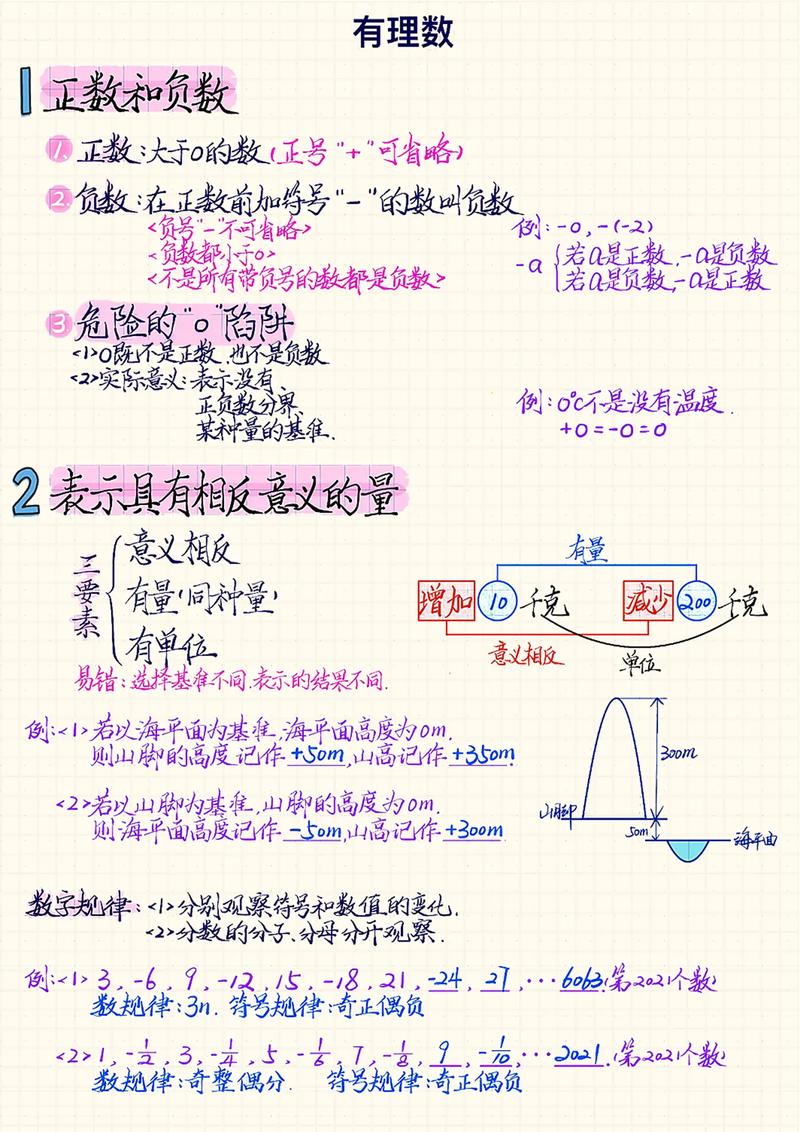 有理数
1 正数和负数
1. 正数:大于0的数(正号"+"可省略)
2. 负数:在正数前加符号"-"的数叫负数
<负号"-"不可省略>
<负数都小于0>
<不是所有带负号的数都是负数>
例:-0,-(-2)
-a { 若a是正数,-a是负数
若a是负数,-a是正数
3 危险的"0"陷阱
<1>0既不是正数,也不是负数
<2>实际意义:表示没有、
正负数分界、
某种量的基准.
例:0℃不是没有温度.
+0=-0=0
2 表示具有相反意义的量
三要素 { 意义相反
有量(同种量)
有单位
易错:选择基准不同.表示的结果不同.
有量
增加 10 千克 减少 200 千克
意义相反
单位
例:<1>若以海平面为基准,海平面高度为0m.
则山脚的高度记作+50m,山高记作+350m.
<2>若以山脚为基准,山脚的高度为0m.
则海平面高度记作-50m,山高记作+300m
300m
山脚
50m
海平面
数字规律:<1>分别观察符号和数值的变化.
<2>分数的分子、分母分开观察.
例:<1>3,-6,9,-12,15,-18,21,-24,27,···6063.(第2021个数)
数规律:3n.符号规律:奇正偶负
<2>1,-1/2,3,-1/4,5,-1/6,7,-1/8,9,-1/10,···2021.(第2021个数)
数规律:奇整偶分. 符号规律:奇正偶负